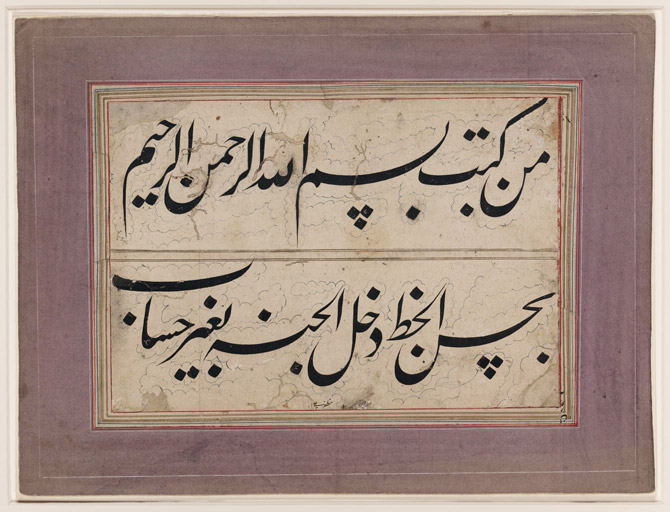 من کتب بسم الله الرحمن الرحیم
بحسن الخط دخل الجنه بغیر حساب